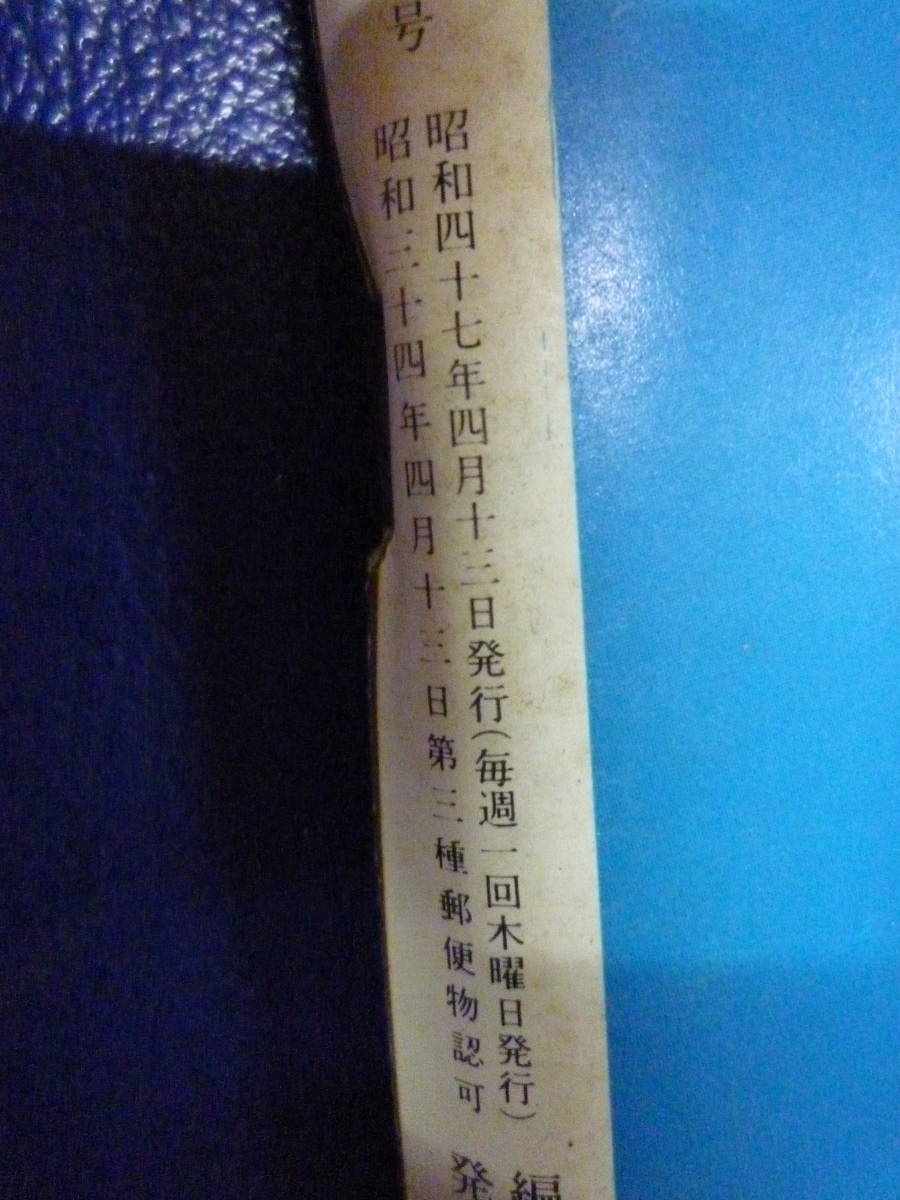 号
昭和四十七年四月十三日発行(毎週一回木曜日発行)
昭和三十四年四月十三日第三種郵便物認可
編
発